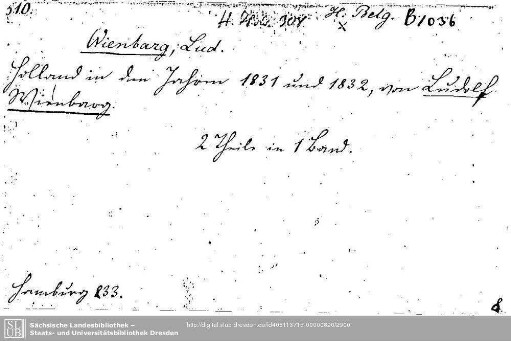 510.
H. Belg. B1036
Wienbarg, Lud.
Holland in den Jahren 1831 und 1832, von Ludolf
Wienbarg.
2 Theile in 1 Band.
Hamburg 833.
8.
SLUB
Sächsische Landesbibliothek –
Staats- und Universitätsbibliothek Dresden